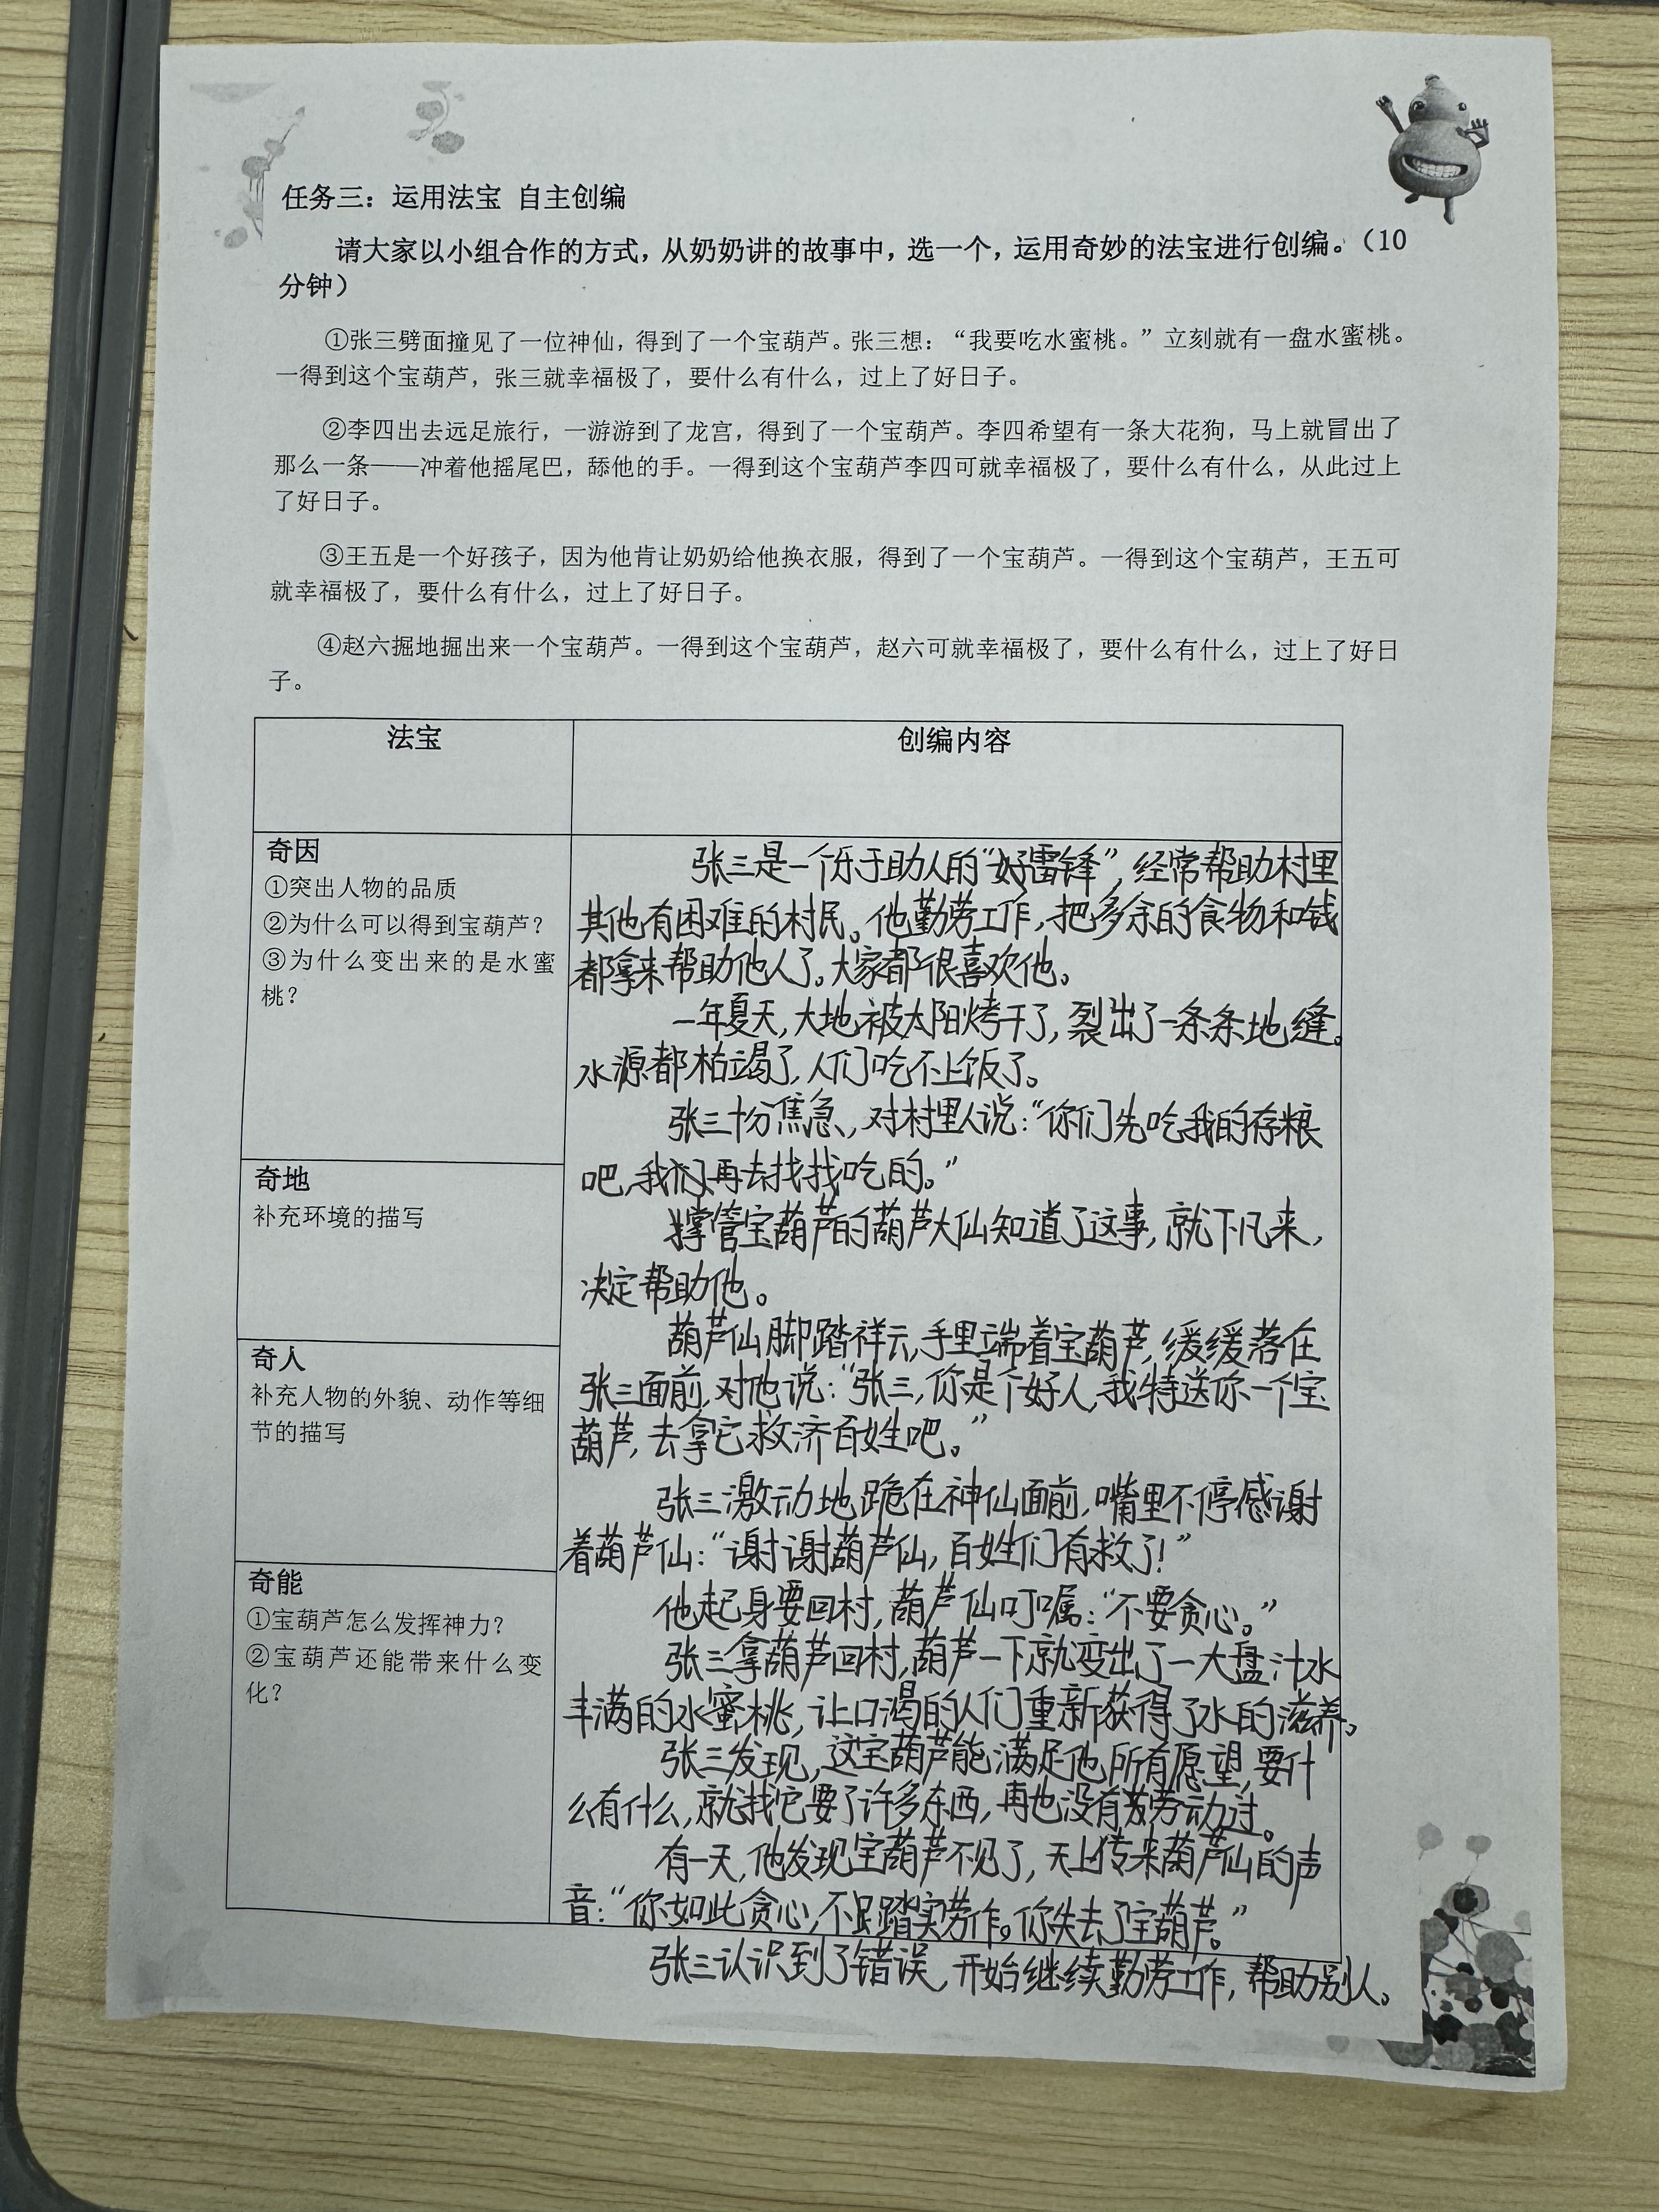 任务三：运用法宝 自主创编
请大家以小组合作的方式，从奶奶讲的故事中，选一个，运用奇妙的法宝进行创编。（10
分钟）
①张三劈面撞见了一位神仙，得到了一个宝葫芦。张三想：“我要吃水蜜桃。”立刻就有一盘水蜜桃。
一得到这个宝葫芦，张三就幸福极了，要什么有什么，过上了好日子。
②李四出去远足旅行，一游游到了龙宫，得到了一个宝葫芦。李四希望有一条大花狗，马上就冒出了
那么一条——冲着他摇尾巴，舔他的手。一得到这个宝葫芦李四可就幸福极了，要什么有什么，从此过上
了好日子。
③王五是一个好孩子，因为他肯让奶奶给他换衣服，得到了一个宝葫芦。一得到这个宝葫芦，王五可
就幸福极了，要什么有什么，过上了好日子。
④赵六掘地掘出来一个宝葫芦。一得到这个宝葫芦，赵六可就幸福极了，要什么有什么，过上了好日
子。
法宝
创编内容
奇因
①突出人物的品质
②为什么可以得到宝葫芦？
③为什么变出来的是水蜜
桃？
奇地
补充环境的描写
奇人
补充人物的外貌、动作等细
节的描写
奇能
①宝葫芦怎么发挥神力？
②宝葫芦还能带来什么变
化？
张三是一个乐于助人的“好雷锋”，经常帮助村里
其他有困难的村民。他勤劳工作，把多余的食物和钱
都拿来帮助他人了。大家都很喜欢他。
一年夏天，大地被太阳烤干了，裂出了一条条地缝。
水源都枯竭了，人们吃不上饭了。
张三十分焦急，对村里人说：“你们先吃我的存粮
吧，我们再去找找吃的。”
掌管宝葫芦的葫芦大仙知道了这事，就下凡来，
决定帮助他。
葫芦仙脚踏祥云，手里端着宝葫芦，缓缓落在
张三面前，对他说：“张三，你是个好人，我特送你一个宝
葫芦，去拿它救济百姓吧。”
张三激动地跪在神仙面前，嘴里不停感谢
着葫芦仙：“谢谢葫芦仙，百姓们有救了！”
他起身要回村，葫芦仙叮嘱：“不要贪心。”
张三拿葫芦回村，葫芦一下就变出了一大盘汁水
丰满的水蜜桃，让口渴的人们重新获得了水的滋养。
张三发现，这宝葫芦能满足他所有愿望，要什
么有什么，就找它要了许多东西，再也没有劳动过。
有一天，他发现宝葫芦不见了，天上传来葫芦仙的声
音：“你如此贪心，不脚踏实劳作。你失去了宝葫芦。”
张三认识到了错误，开始继续勤劳工作，帮助别人。